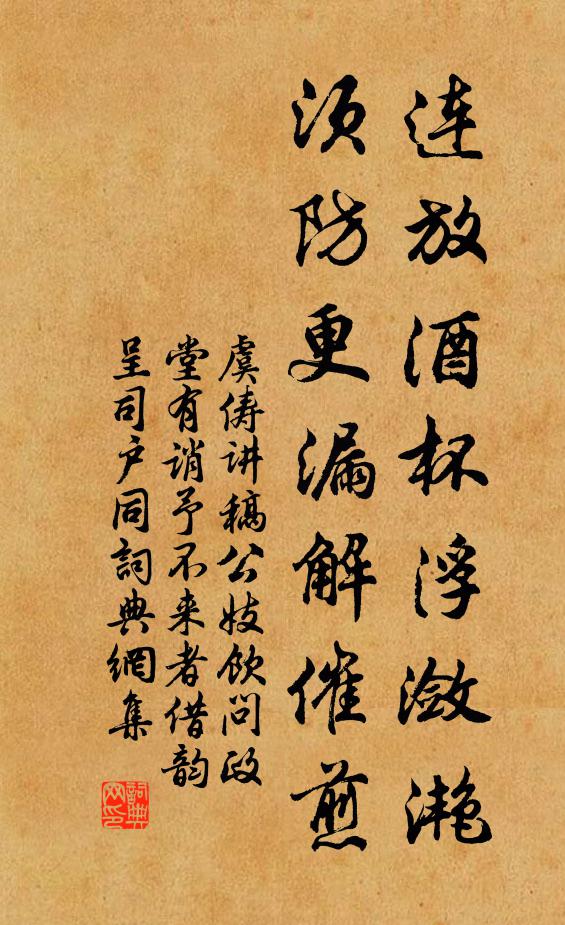 连放酒杯浮潋滟
须防更漏解催煎
虞俦讲稿公妓饮问政
堂有诮予不来者借韵
呈司户同詞典網集
詞典
网印